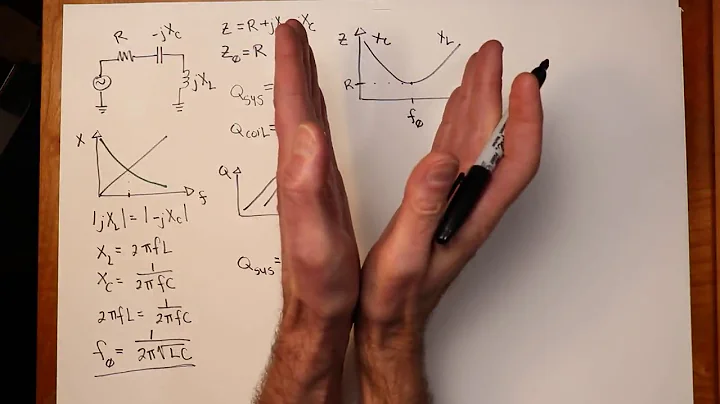 R -jXc
jXL
X
f
|jXL| = |-jXc|
XL = 2πfL
Xc = 1/2πfC
2πfL = 1/2πfC
fø = 1/2π√LC
Z = R + jX Xc
Zø = R
Qsys =
Qcoil =
Q
Qsys =
Z Xc XL
R
fø